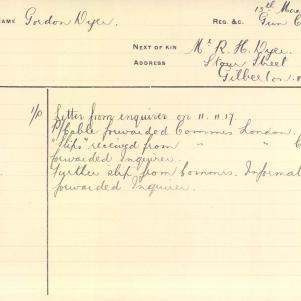 NAME Gordon Dyer
REG. &C.
13th
Gun C
NEXT OF KIN Mr R. H. Dyer.
ADDRESS
Street
1/P Letter from enquirer on 11.11.17.
Cable forwarded Commrs London.
"Slip" received from " " C
forwarded Inquirer.
Further slip from Commrs. Informat
forwarded Inquirer.